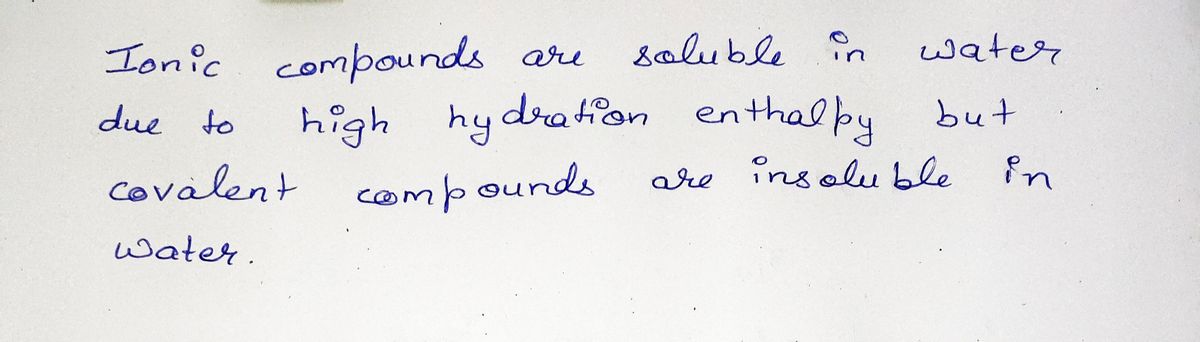 Ionic compounds are soluble in water
due to high hydration enthalpy but
covalent compounds are insoluble in
water.